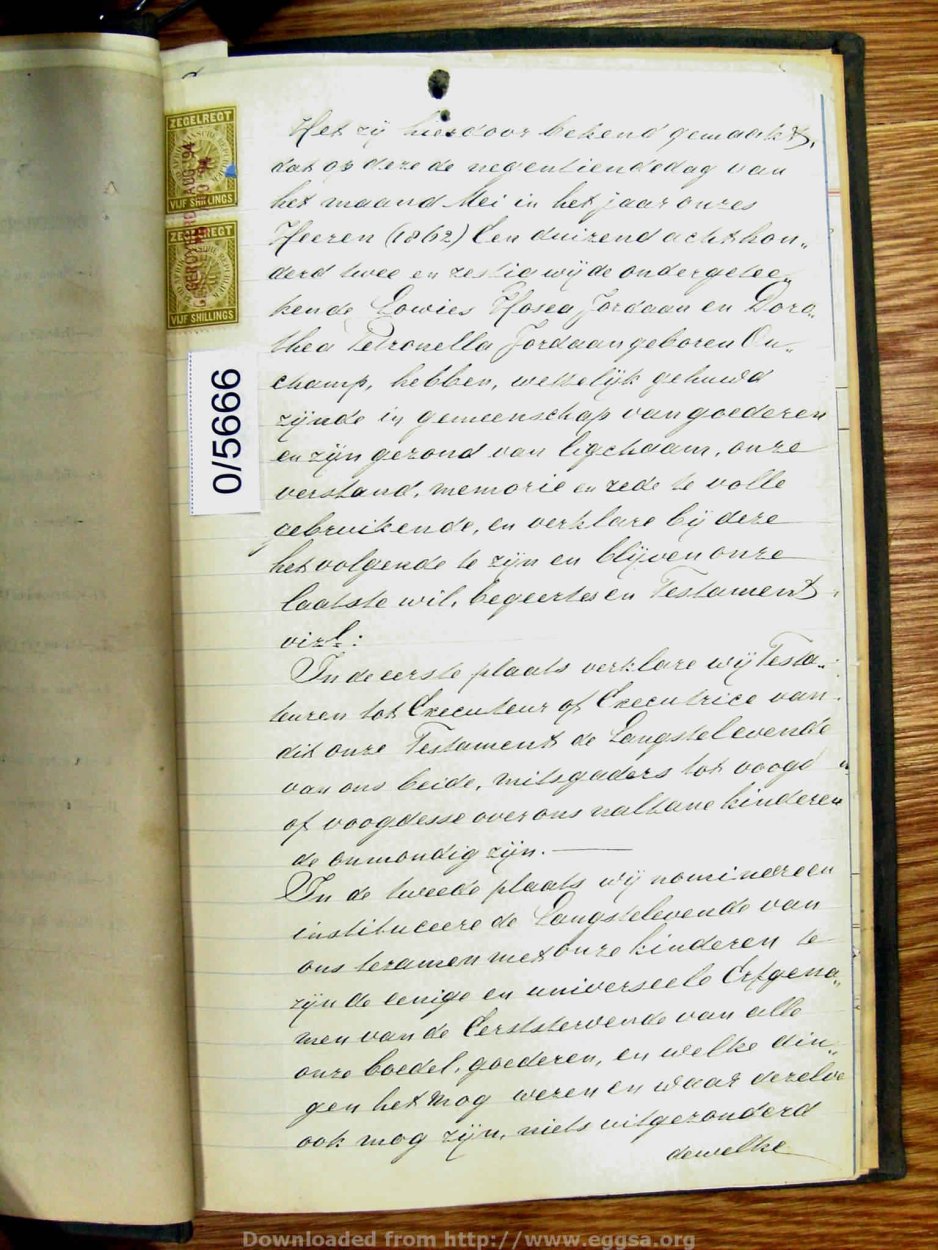 ZEGELREGT
VIJF SHILLINGS
ZEGELREGT
VIJF SHILLINGS
0/5666
Het zij hierdoor bekend gemaakt,
dat op deze de negentiendedag van
het maand Mei in het jaar onzes
Heeren (1862) Een duizend acht hon„
derd twee en zestig wij de ondergetee„
kende Lowies Hosea Jordaan en Doro„
thea Petronella Jordaan geboren On„
champ, hebben, wettelijk gehuwd
zijnde in gemeenschap van goederen
en zijn gezond van ligchaam, onze
verstand, memorie en rede te volle
gebruikende, en verklare bij deze
het volgende te zijn en blijven onze
laatste wil, begeertes en Testament
vizt:
In de eerste plaats verklare wij Testa„
teuren tot Executeur of Executrice van
dit onze Testament de Langstelevende
van ons beide, mitsgaders tot voogd
of voogdesse over ons naltane kinderen
de onmondig zijn.
In de tweede plaats wij nomineere en
instituceere de Langstelevende van
ons tezamen met onze kinderen te
zijn de eenige en universeele Erfgena„
men van de Eerststervende van alle
onze boedel, goederen, en welke din„
gen het mog wezen en waar dezelve
ook mog zijn, niets uitgezonderd
dewelke
Downloaded from http://www.eggsa.org